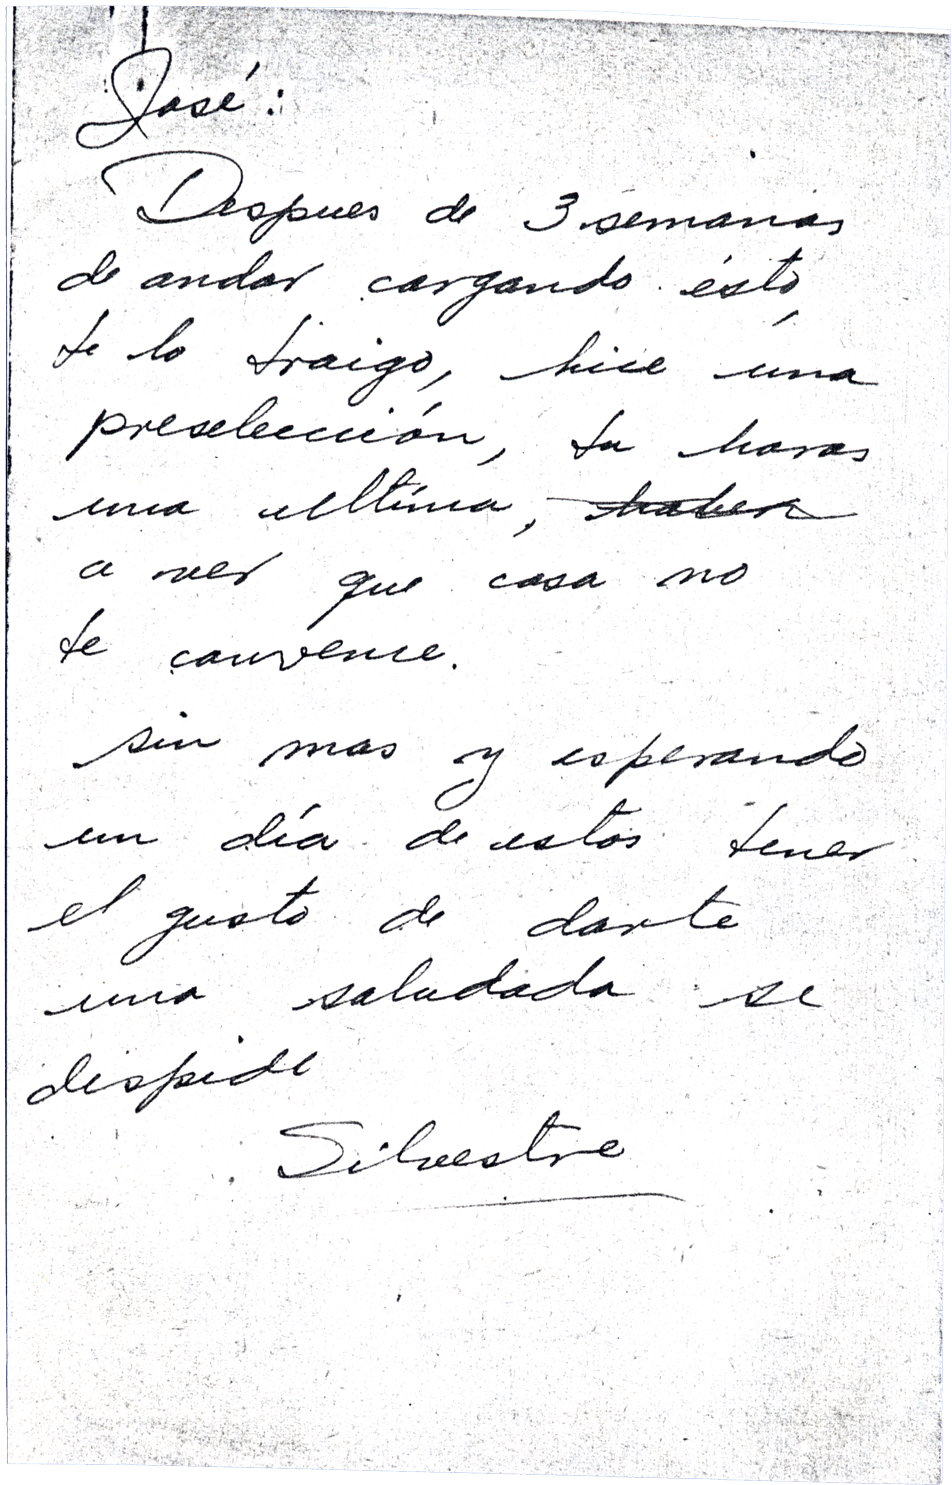 José:
Despues de 3 semanas
de andar cargando ésto,
te lo traigo, hice una
preselección, tu haras
una ultima, haber
a ver que cosa no
te convence.
sin mas y esperando
un día de estos tener
el gusto de darte
una saludada se
despide
Silvestre